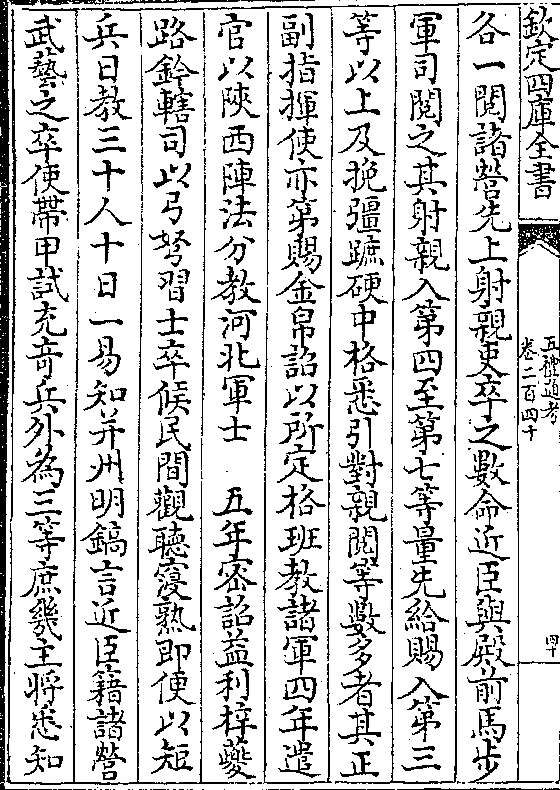 欽定四庫全書
五禮通考
卷二百四十
四十
各一閱諸營先上射親吏卒之數命近臣與殿前馬步
軍司閱之其射親入第四至第七等量先給賜入第三
等以上及挽彊蹠硬中格悉引對親閱等數多者其正
副指揮使亦第賜金帛詔以所定格班教諸軍四年遣
官以陜西陣法分教河北軍士　五年密詔益利梓夔
路鈐轄司以弓弩習士卒候民間觀聽寖熟即便以短
兵日教三十人十日一易知并州明鎬言近臣籍諸營
武藝之卒使帶甲試充竒兵外為三等庶幾主將悉知